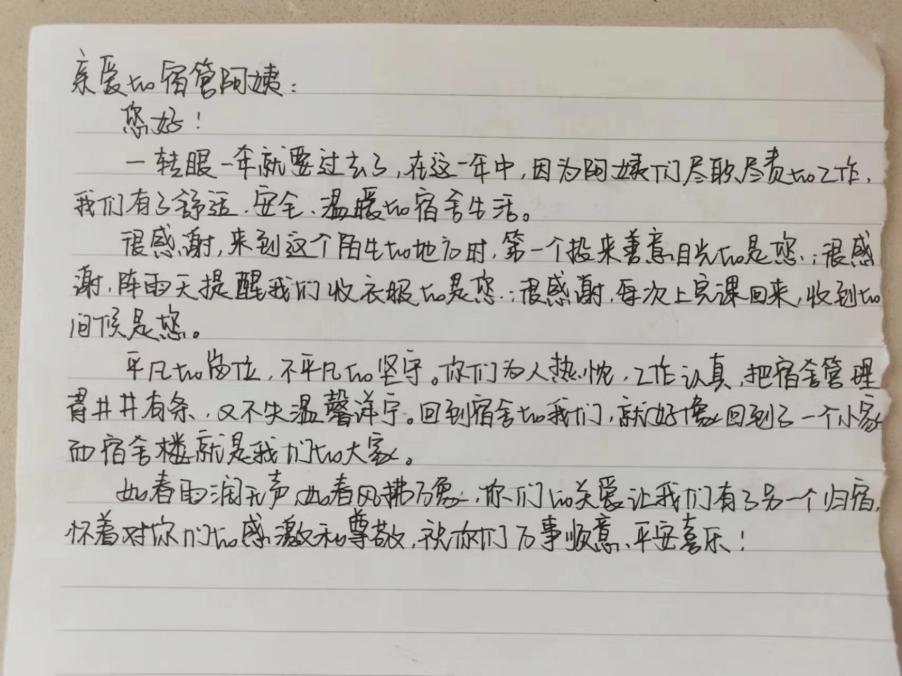 亲爱的宿管阿姨:
您好!
一转眼一年就要过去了,在这一年中,因为阿姨们尽职尽责的工作,
我们有了舒适、安全、温暖的宿舍生活。
很感谢,来到这个陌生的地方时,第一个投来善意目光的是您;很感
谢,阵雨天提醒我们收衣服的是您;很感谢,每次上完课回来,收到的
问候是您。
平凡的岗位,不平凡的坚守。你们为人热忱,工作认真,把宿舍管理
得井井有条,又不失温馨详宁。回到宿舍的我们,就好像回到了一个小家
而宿舍楼就是我们的大家。
如春雨润无声,如春风拂万象,你们的关爱让我们有了另一个归宿,
怀着对你们的感激和尊敬,祝你们万事顺意、平安喜乐!